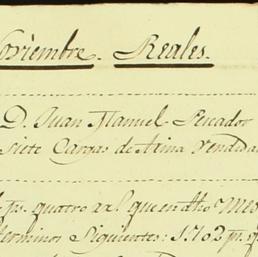 oviembre. Reales.
D. Juan Manuel Pescador
siete Cargas de Arina Vendida
p.s quatro rr.s que en dho Mes
terminos Siguientes: 1.702 p.s